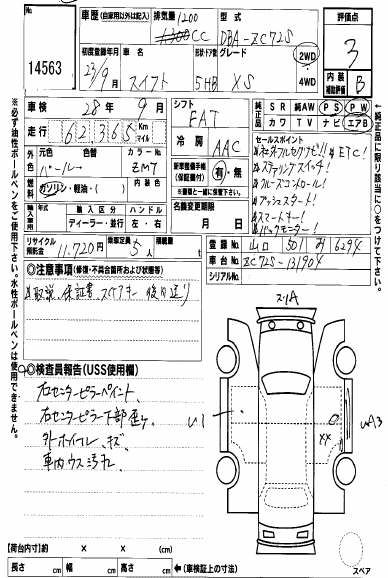 車歴 (自家用以外は記入)
排気量 1200 CC
型式 DBA-ZC72S
評価点 3
14563
初度登録年月 23/9月
車名 スイフト
形状・ドア数 5HB
グレード XS
2WD
4WD
内装補助評価 B
車検 28年 9月
シフト FAT
純正品 SR 純AW PS PW
カワ TV ナビ エアB
走行 62365 Km マイル
冷房 AAC
セールスポイント
外色 元色 パール
色替
カラーNo. ZMT
ETC!
ステアリングスイッチ!
クルーズコントロール!
プッシュスタート!
スマートキー!
燃料 ガソリン・軽油・( )
内装色
新車整備手帳(保証書付) 有・無
※書類と一緒に保管下さい。
輸入車
輸入区分 ディーラー・並行
ハンドル 左・右
名義変更期限 月 日
リサイクル預託金 11,720円
乗車定員 5人
積載量 t
登録No. 山口 501 み 6294
車台No. ZC72S-131904
シリアルNo.
◎注意事項 (修復・不具合箇所および状態等)
取説、保証書、スペアキー 後日送り
スリA
◎検査員報告 (USS使用欄)
右センターピラーペイント、
右センターピラー下部歪ヶ、
外 ホイール、キズ
車内ウス汚れ
U1
XX
WA3
【荷台内寸】 × × (cm)
長さ cm 幅 cm 高さ cm ←(車検証上の寸法)
スペア
※必ず油性ボールペンをご使用下さい。水性ボールペンは使用できません。
純正品に限り該当に○をつけて下さい。